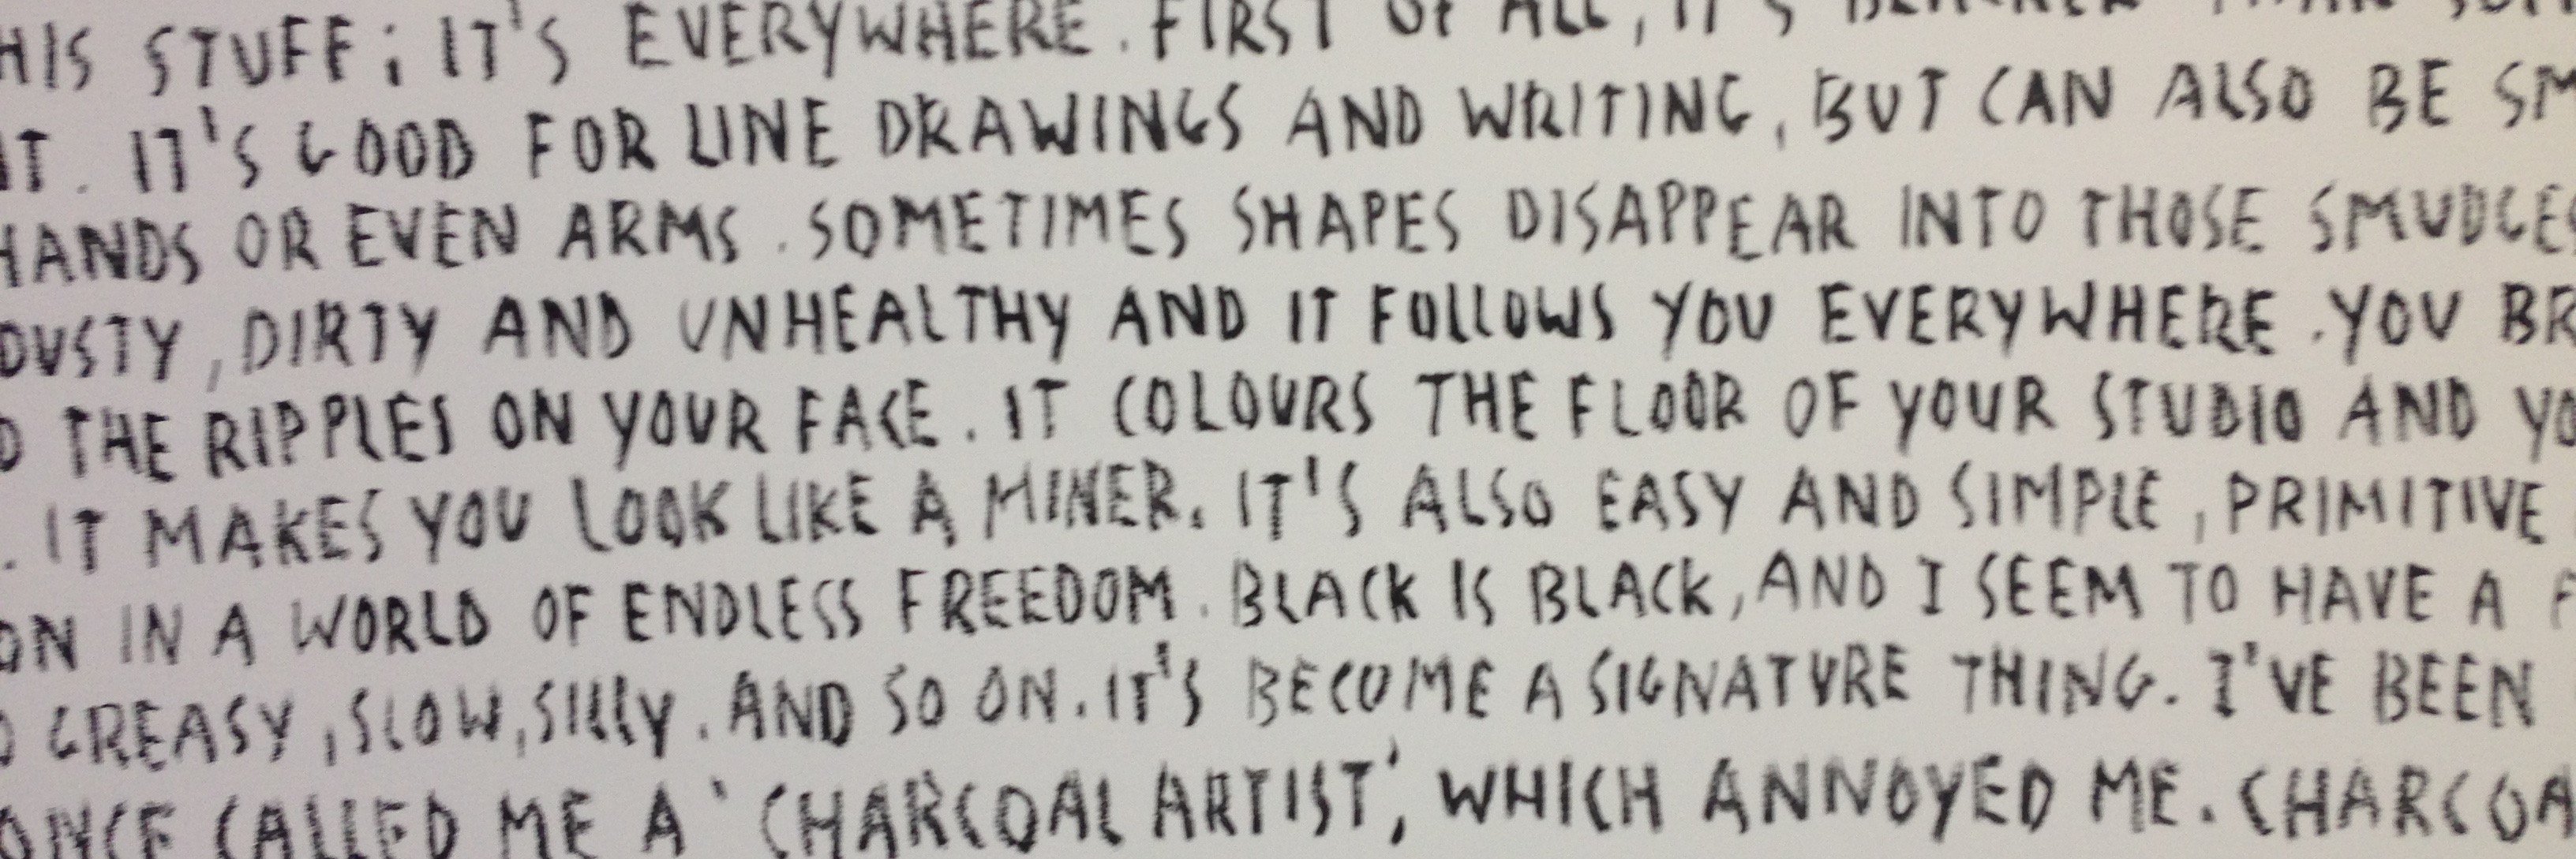 HIS STUFF; IT'S EVERYWHERE. FIRST OF ALL, IT'S BLACKER THAN
IT. IT'S GOOD FOR LINE DRAWINGS AND WRITING, BUT CAN ALSO BE SM
HANDS OR EVEN ARMS. SOMETIMES SHAPES DISAPPEAR INTO THOSE SMUDGES
DUSTY, DIRTY AND UNHEALTHY AND IT FOLLOWS YOU EVERYWHERE. YOU BR
D THE RIPPLES ON YOUR FACE. IT COLOURS THE FLOOR OF YOUR STUDIO AND YO
. IT MAKES YOU LOOK LIKE A MINER. IT'S ALSO EASY AND SIMPLE, PRIMITIVE
ON IN A WORLD OF ENDLESS FREEDOM. BLACK IS BLACK, AND I SEEM TO HAVE A
D GREASY, SLOW, SILLY. AND SO ON. IT'S BECOME A SIGNATURE THING. I'VE BEEN
ONCE CALLED ME A 'CHARCOAL ARTIST', WHICH ANNOYED ME. CHARCOA